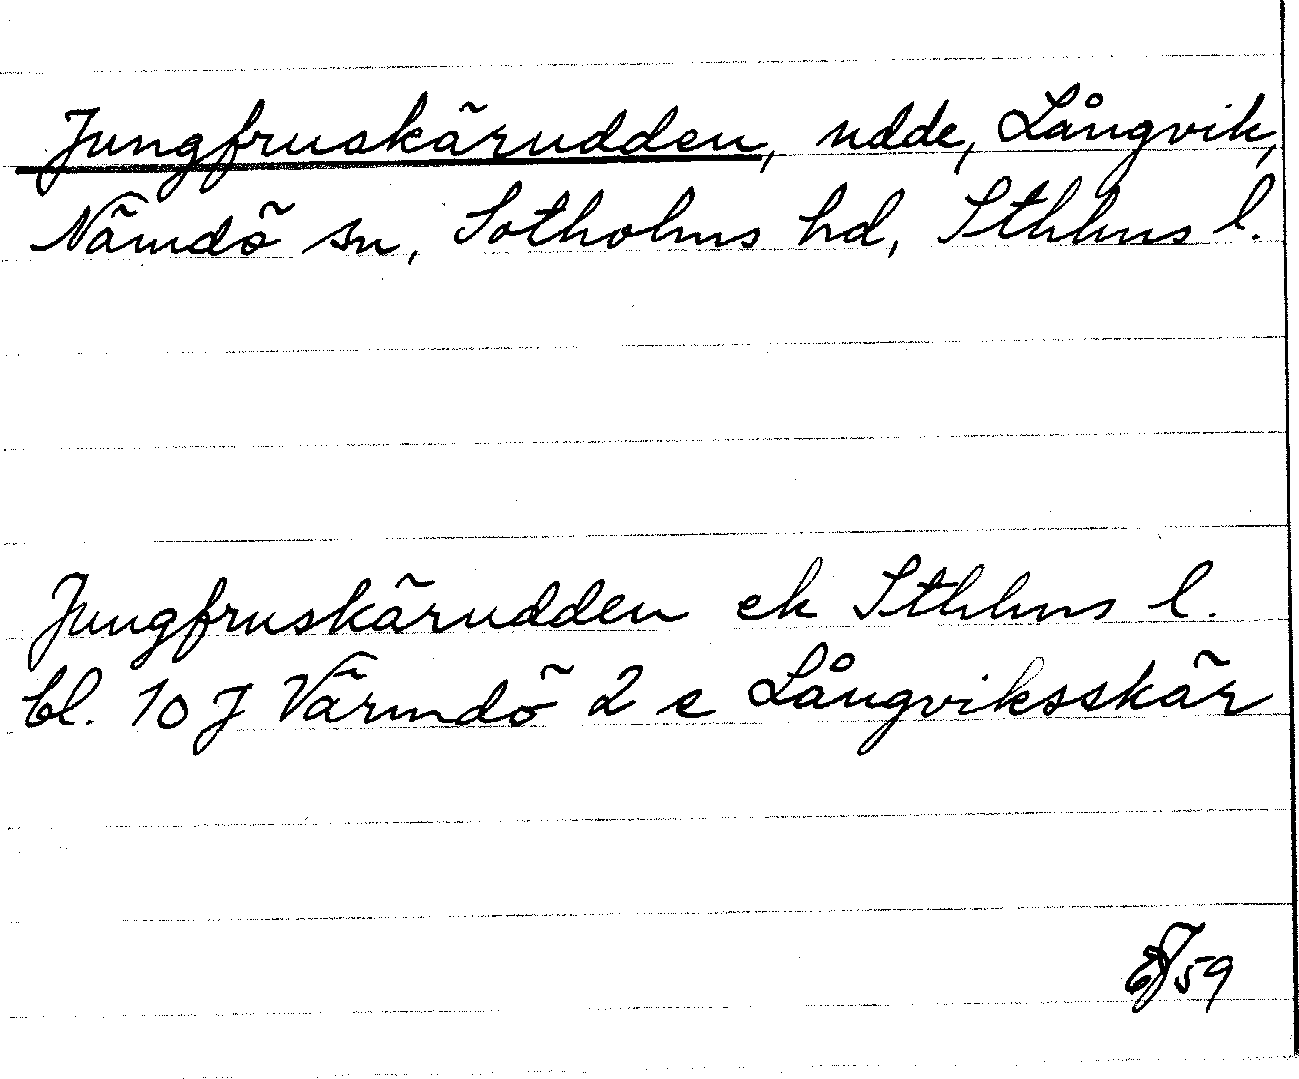 Jungfruskärudden, udde, Långvik,
Nämdö sn, Sotholms hd, Sthlms l.
Jungfruskärudden ek Sthlms l.
bl. 10 J Värmdö 2 e Långviksskär
59